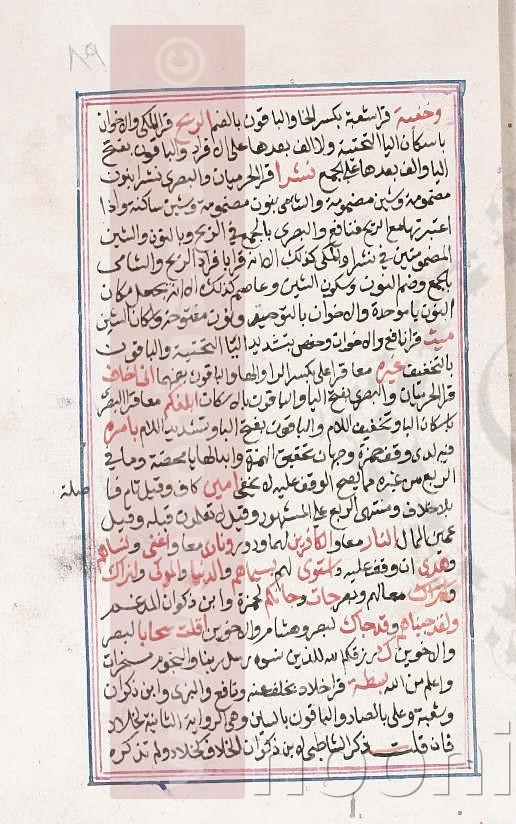 وخفية قرا شعبة بكسر الخا والباقون بالضم الريح قرا المكي والاخوان
باسكان اليا التحتية ولا الف بعدها على الافراد والباقون بفتح
اليا والف بعدها على الجمع نشرا قرا الحرميان والبصري نشرا بنون
مضمومة وشين مضمومة والشامي بنون مضمومة وشين ساكنة واذا
اعتبرتها مع الريح فنافع والبصري بالجمع في الريح وبالنون والشين
المضمومتين في نشرا والمكي كذلك الا انه قرا بافراد الريح والشامي
بالجمع وضم النون وسكون الشين وعاصم كذلك الا انه يجعل مكان
النون با موحدة والاخوان بالتوحيد ونون مفتوحة واسكان الشين
ميت قرا نافع والاخوان وحفص بتشديد اليا التحتية والباقون
بالتخفيف غيره معا قرا علي بكسر الرا والها والباقون بضمهما اني اخاف
قرا الحرميان والبصري بفتح اليا والباقون بالاسكان ابلغكم معا قرا البصري
باسكان البا وتخفيف اللام والباقون بفتح البا وتشديد اللام بامره
فيه لدى وقف حمزة وجهان تحقيق الهمزة وابدالها يا محضة وما في
الربع من غيره مما يصح الوقف عليه لا يخفى امين كاف وقيل تام فاصلة
بلا خلاف ومنتهى الربع على المشهور وقيل تعلمون قبله وقيل
عمين الممال النار معا والكافرين لهما ودور ونادى معا واغنى وننساهم
وهدى ان وقف عليه واستوى لهم بسيماهم والدنيا والموتى ولنراك
ونراك معا لهم وبصر جات وجاكم لحمزة وابن ذكوان المدغم
ولقد جيناهم وقد جات لبصر وهشام والاخوين اقلت سحابا لبصر
والاخوين ك رزقكم الله للذين نسوه رسل ربنا والنجوم مسخرات
واعلم من الله بسطة قرا خلاد بخلف عنه ونافع والبزي وابن ذكوان
وشعبة وعلي بالصاد والباقون بالسين وهي الرواية الثانية لخلاد
فان قلت ذكر الشاطبي لابن ذكوان الخلاف كخلاد ولم تذكره
٨٩
nooni